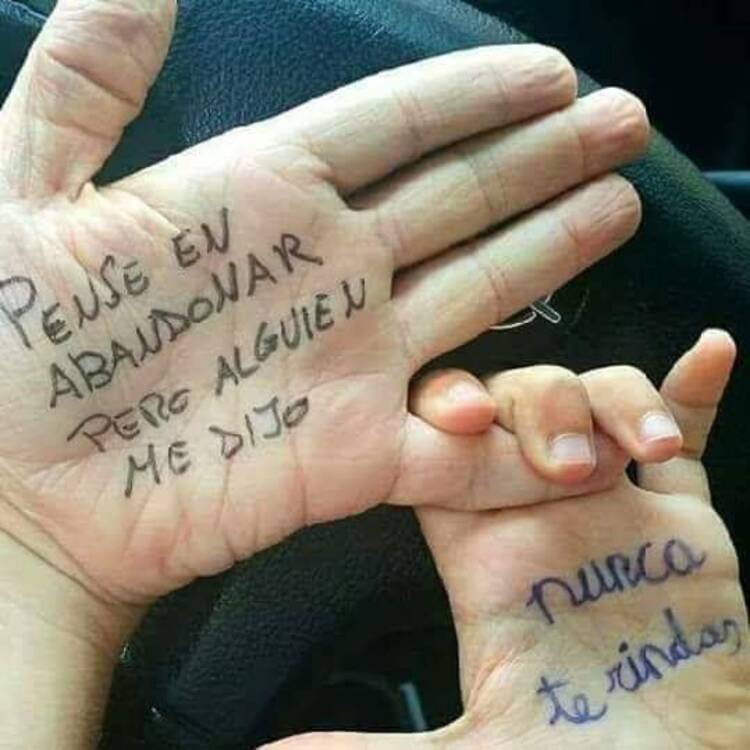 PENSE EN
ABANDONAR
PERO ALGUIEN
ME DIJO
nunca
te rindas